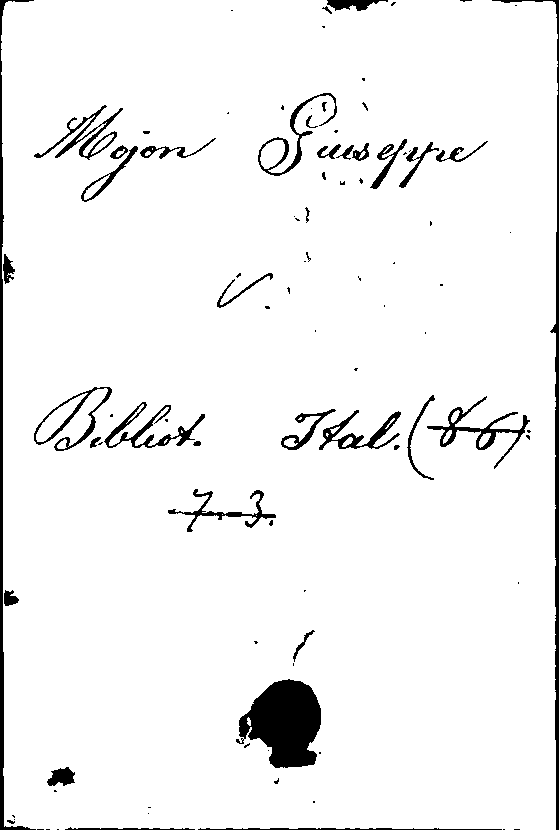 Mojon Giuseppe
V.
Bibliot. Ital. (86)
7. 3.